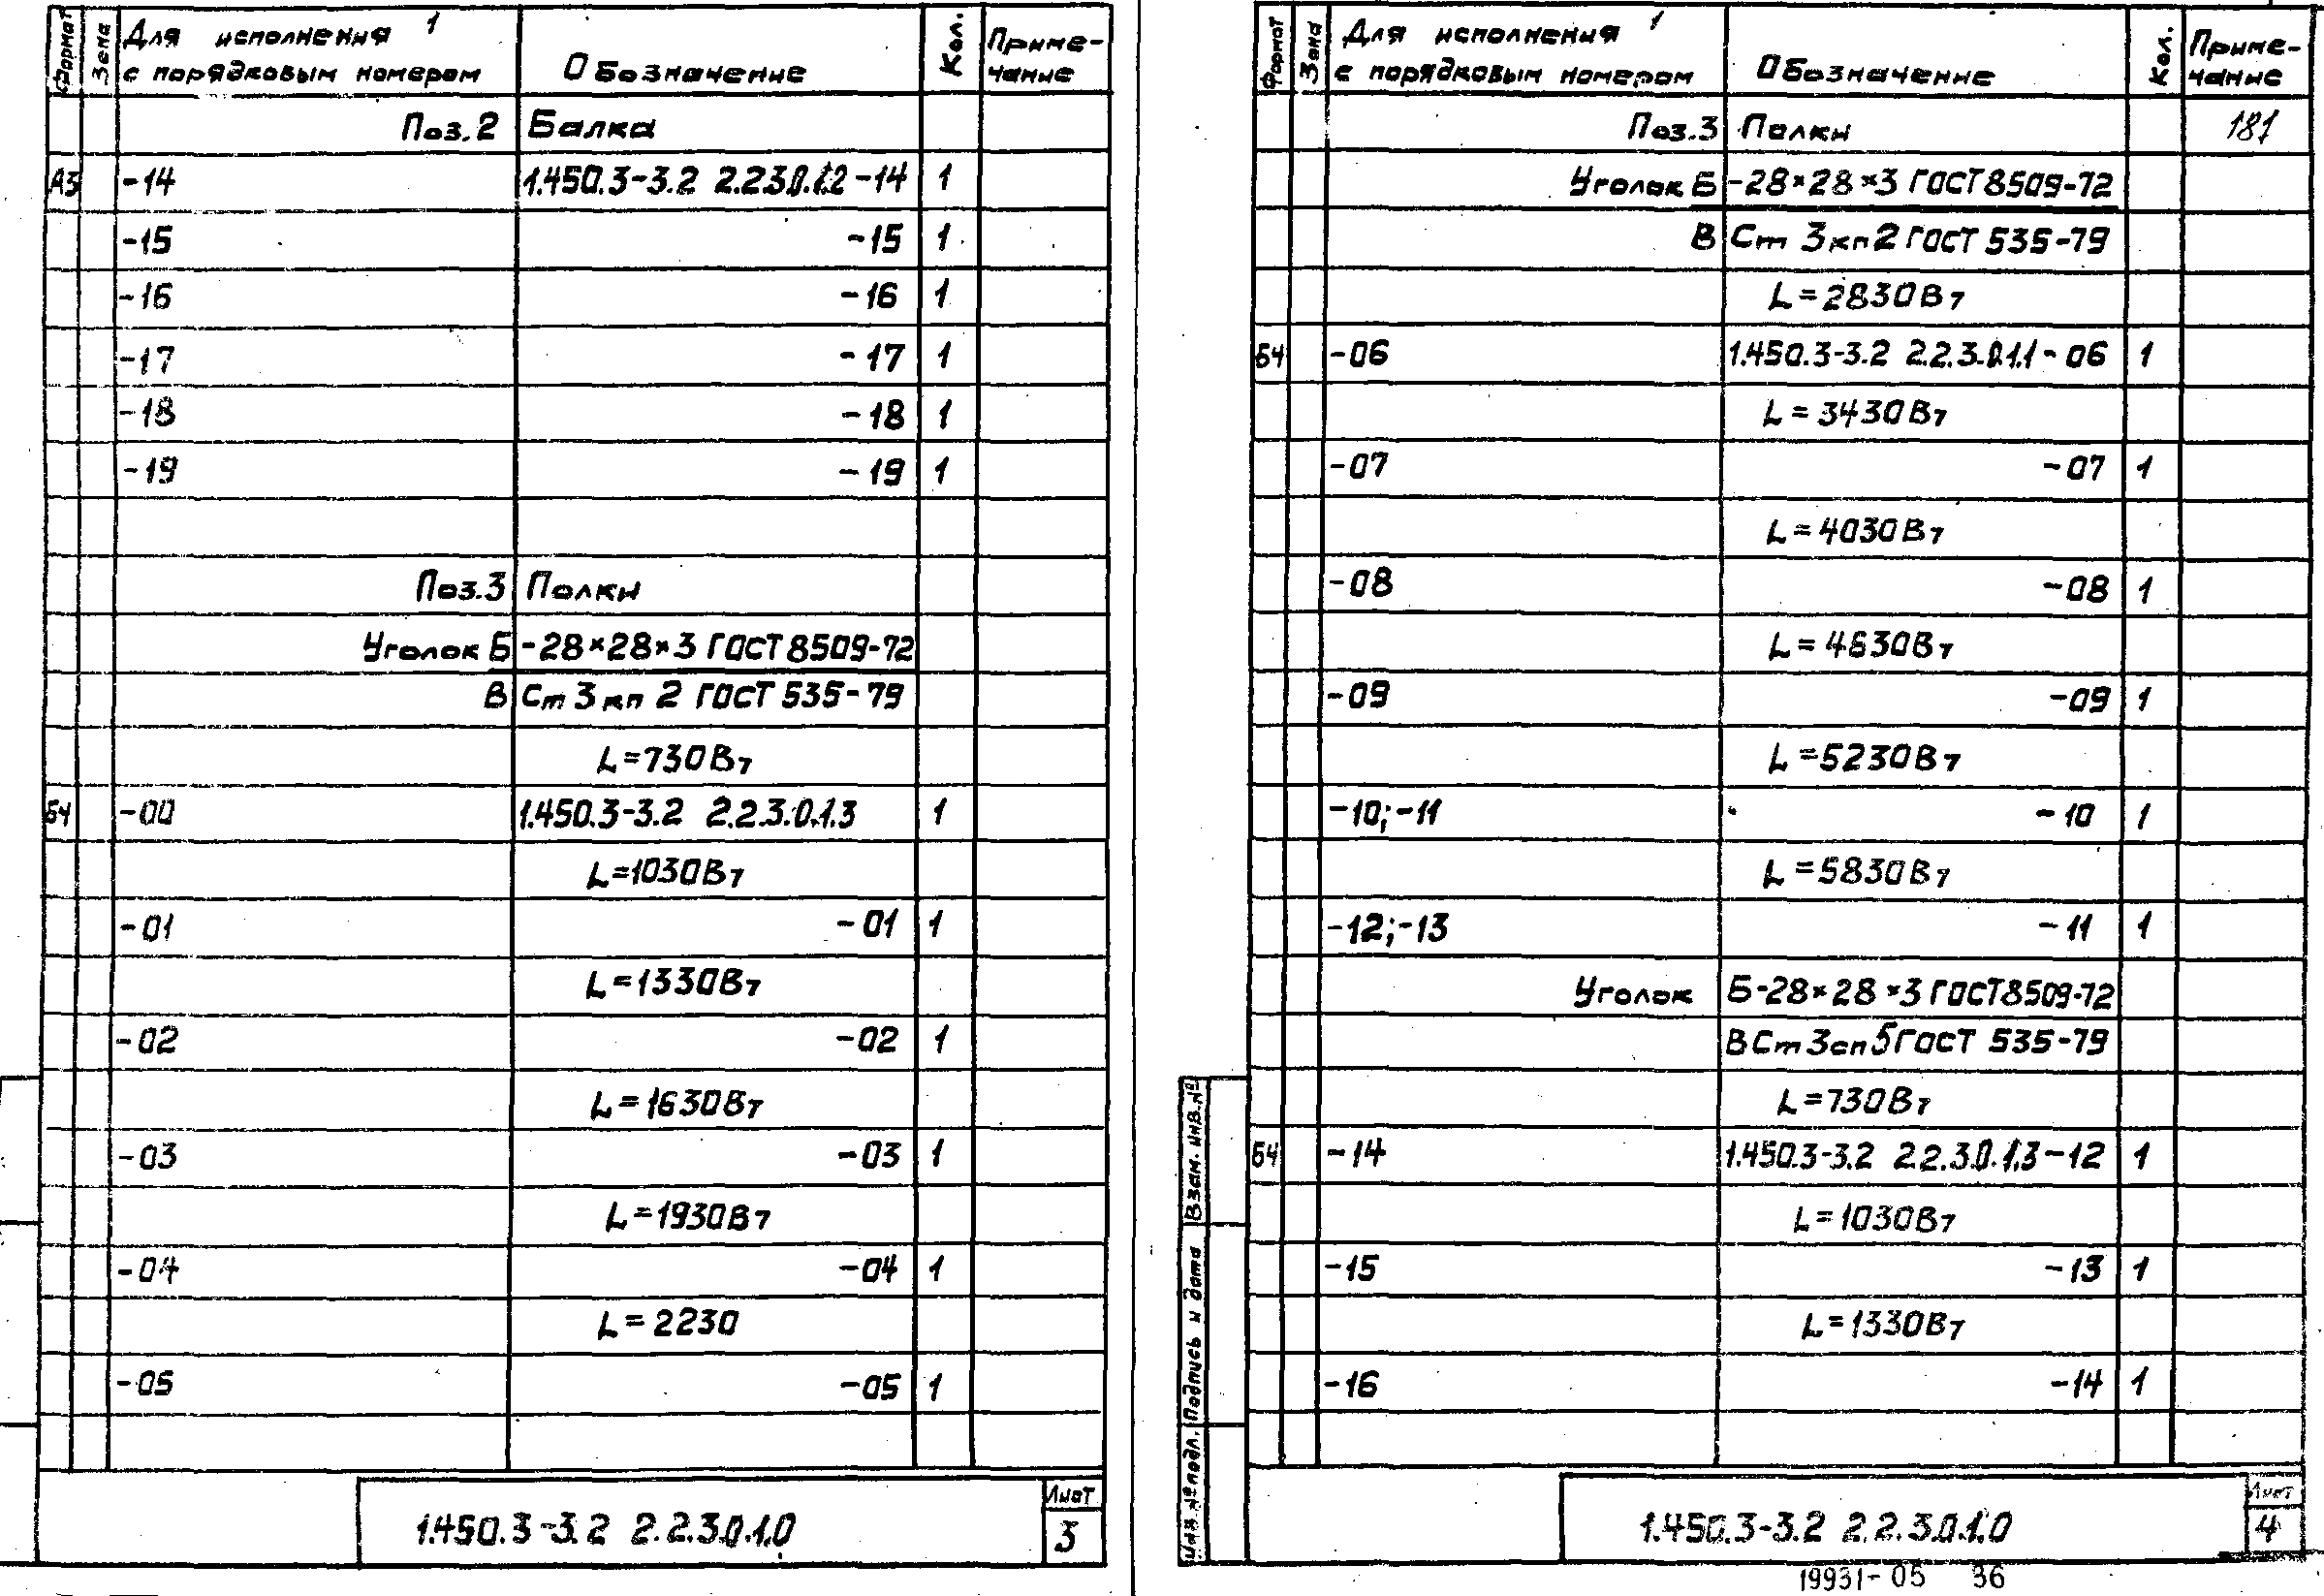 Формат Зона Для исполнения 1 с порядковым номером Обозначение Кол. Примечание
Поз.2 Балка
А3 -14 1.450.3-3.2 2.2.3.0.1.2 -14 1
-15 -15 1
-16 -16 1
-17 -17 1
-18 -18 1
-19 -19 1
Поз.3 Полки
Уголок Б -28×28×3 ГОСТ 8509-72
В Ст 3 кп 2 ГОСТ 535-79
L=730Вт
Б4 -00 1.450.3-3.2 2.2.3.0.1.3 1
L=1030Вт
-01 -01 1
L=1330Вт
-02 -02 1
L=1630Вт
-03 -03 1
L=1930Вт
-04 -04 1
L=2230
-05 -05 1
1.450.3-3.2 2.2.3.0.1.0
Лист
3
Формат Зона Для исполнения 1 с порядковым номером Обозначение Кол. Примечание
Поз.3 Полки 181
Уголок Б -28×28×3 ГОСТ 8509-72
В Ст 3 кп 2 ГОСТ 535-79
L=2830Вт
Б4 -06 1.450.3-3.2 2.2.3.0.1.1 - 06 1
L=3430Вт
-07 -07 1
L=4030Вт
-08 -08 1
L=4630Вт
-09 -09 1
L=5230Вт
-10;-11 -10 1
L=5830Вт
-12;-13 -11 1
Уголок Б-28×28×3 ГОСТ 8509-72
В Ст 3 сп 5 ГОСТ 535-79
L=730Вт
Б4 -14 1.450.3-3.2 2.2.3.0.1.3-12 1
L=1030Вт
-15 -13 1
L=1330Вт
-16 -14 1
Инв.№подл. Подпись и дата Взам.инв.№
1.450.3-3.2 2.2.3.0.1.0
Лист
4
19931-05 36